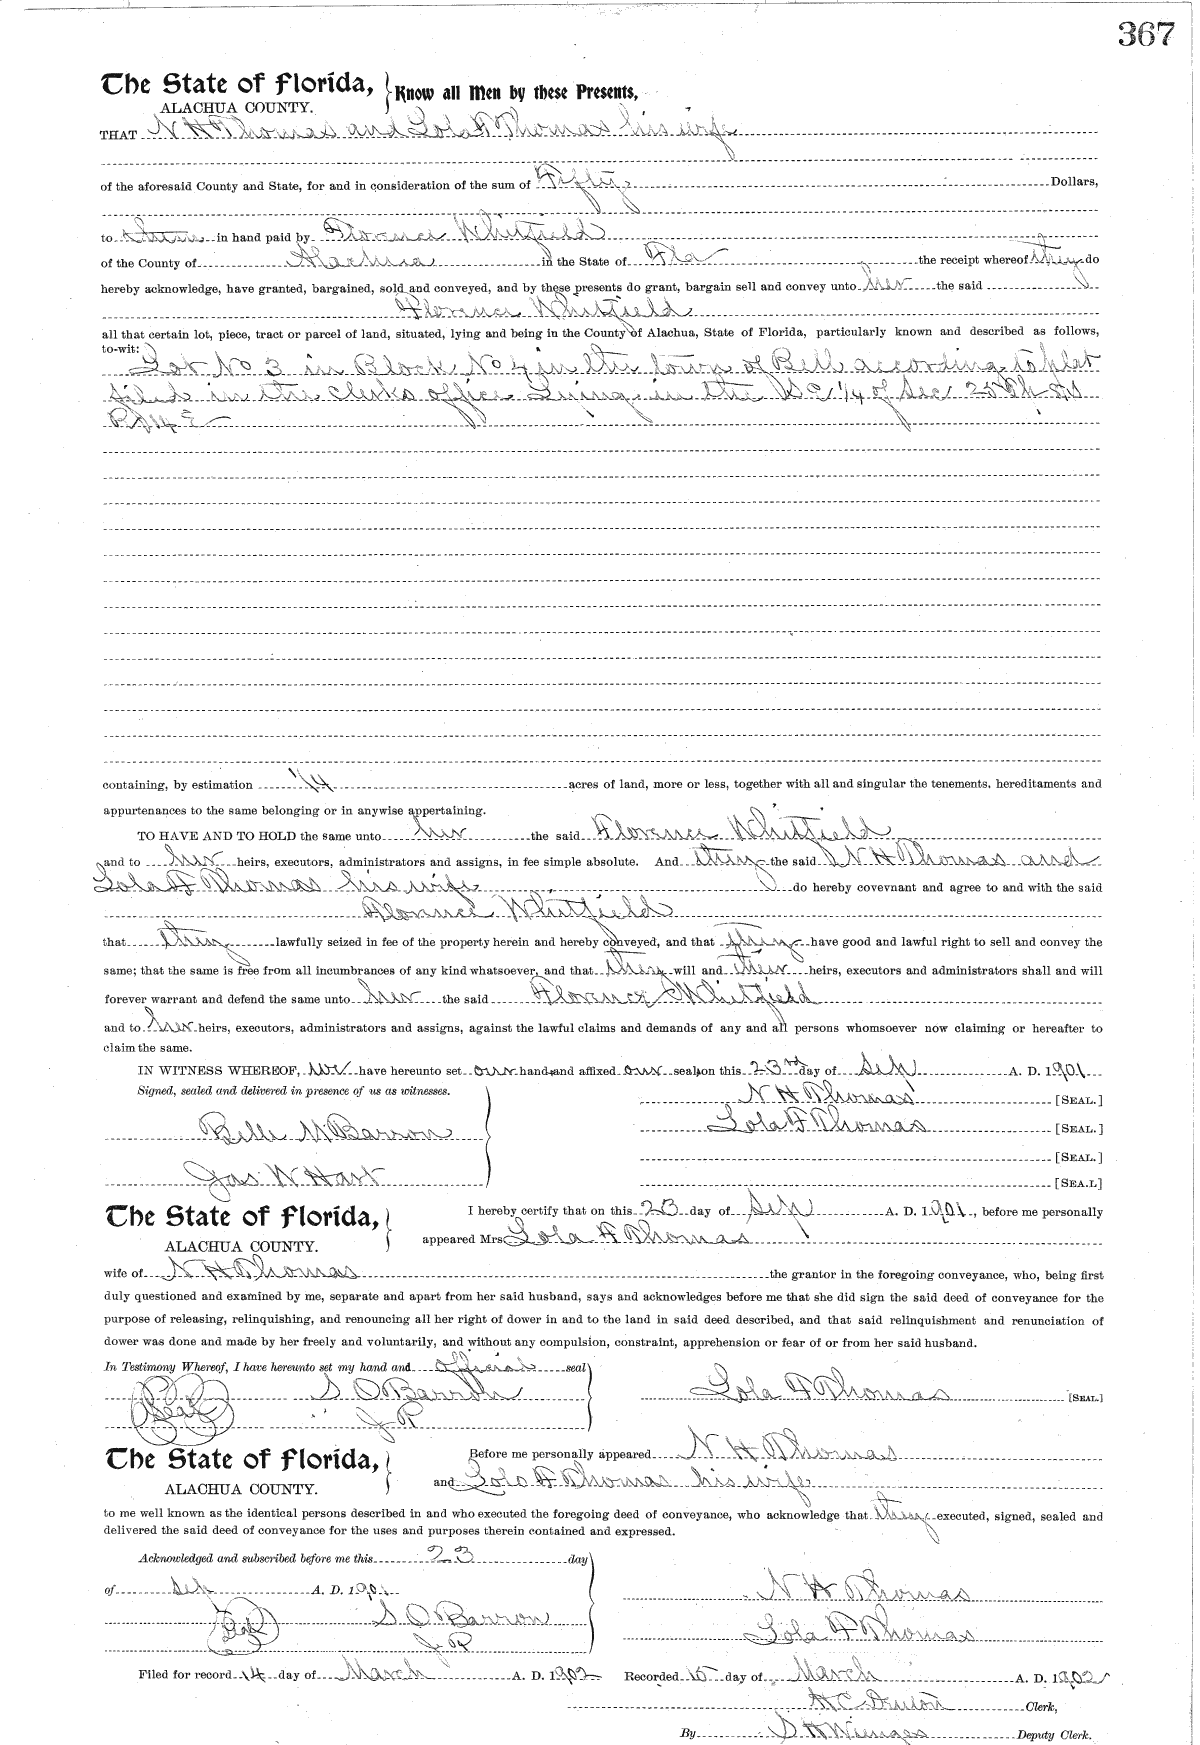 367
The State of Florida,
ALACHUA COUNTY.
Know all Men by these Presents,
THAT N H Thomas and Lola F Thomas his wife
of the aforesaid County and State, for and in consideration of the sum of Fifty Dollars,
to them in hand paid by Florence Whitfield
of the County of Alachua in the State of Fla the receipt whereof they do
hereby acknowledge, have granted, bargained, sold and conveyed, and by these presents do grant, bargain sell and convey unto her the said
Florence Whitfield
all that certain lot, piece, tract or parcel of land, situated, lying and being in the County of Alachua, State of Florida, particularly known and described as follows,
to-wit:
Lot No 3 in Block No 4 in the town of Bell according to plat
filed in the clerks office Lying in the 1/4 of Sec 25
R 14 E
containing, by estimation 1/4 acres of land, more or less, together with all and singular the tenements, hereditaments and
appurtenances to the same belonging or in anywise appertaining.
TO HAVE AND TO HOLD the same unto her the said Florence Whitfield
and to her heirs, executors, administrators and assigns, in fee simple absolute. And they the said N H Thomas and
Lola F Thomas his wife do hereby covevnant and agree to and with the said
Florence Whitfield
that they lawfully seized in fee of the property herein and hereby conveyed, and that they have good and lawful right to sell and convey the
same; that the same is free from all incumbrances of any kind whatsoever, and that they will and their heirs, executors and administrators shall and will
forever warrant and defend the same unto her the said Florence Whitfield
and to her heirs, executors, administrators and assigns, against the lawful claims and demands of any and all persons whomsoever now claiming or hereafter to
claim the same.
IN WITNESS WHEREOF, we have hereunto set our hands and affixed our seals on this 23rd day of Sep A. D. 1901
Signed, sealed and delivered in presence of us as witnesses.
N H Thomas [SEAL.]
Belle M Barron
Lola F Thomas [SEAL.]
[SEAL.]
Jas W Hart
[SEA.L]
The State of Florida,
ALACHUA COUNTY.
I hereby certify that on this 23 day of Sep A. D. 1901, before me personally
appeared Mrs Lola F Thomas
wife of N H Thomas the grantor in the foregoing conveyance, who, being first
duly questioned and examined by me, separate and apart from her said husband, says and acknowledges before me that she did sign the said deed of conveyance for the
purpose of releasing, relinquishing, and renouncing all her right of dower in and to the land in said deed described, and that said relinquishment and renunciation of
dower was done and made by her freely and voluntarily, and without any compulsion, constraint, apprehension or fear of or from her said husband.
In Testimony Whereof, I have hereunto set my hand and official seal
Seal S O Barron
Lola F Thomas [SEAL.]
J P
The State of Florida,
ALACHUA COUNTY.
Before me personally appeared N H Thomas
and Lola F Thomas his wife
to me well known as the identical persons described in and who executed the foregoing deed of conveyance, who acknowledge that they executed, signed, sealed and
delivered the said deed of conveyance for the uses and purposes therein contained and expressed.
Acknowledged and subscribed before me this 23 day
of Sep A. D. 1901
N H Thomas
Seal S O Barron
Lola F Thomas
J P
Filed for record 14 day of March A. D. 1902 Recorded 15 day of March A. D. 1902
H C Clerk,
By S H Wienges Deputy Clerk.